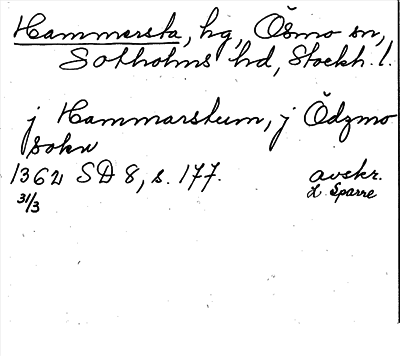 Hammarsta, hg, Ösmo sn,
Sotholms hd, Stockh. l.
j Hammarstum, j Ödzmo
sokn
1362 SD 8, s. 177. avskr.
31/3 L. Sparre